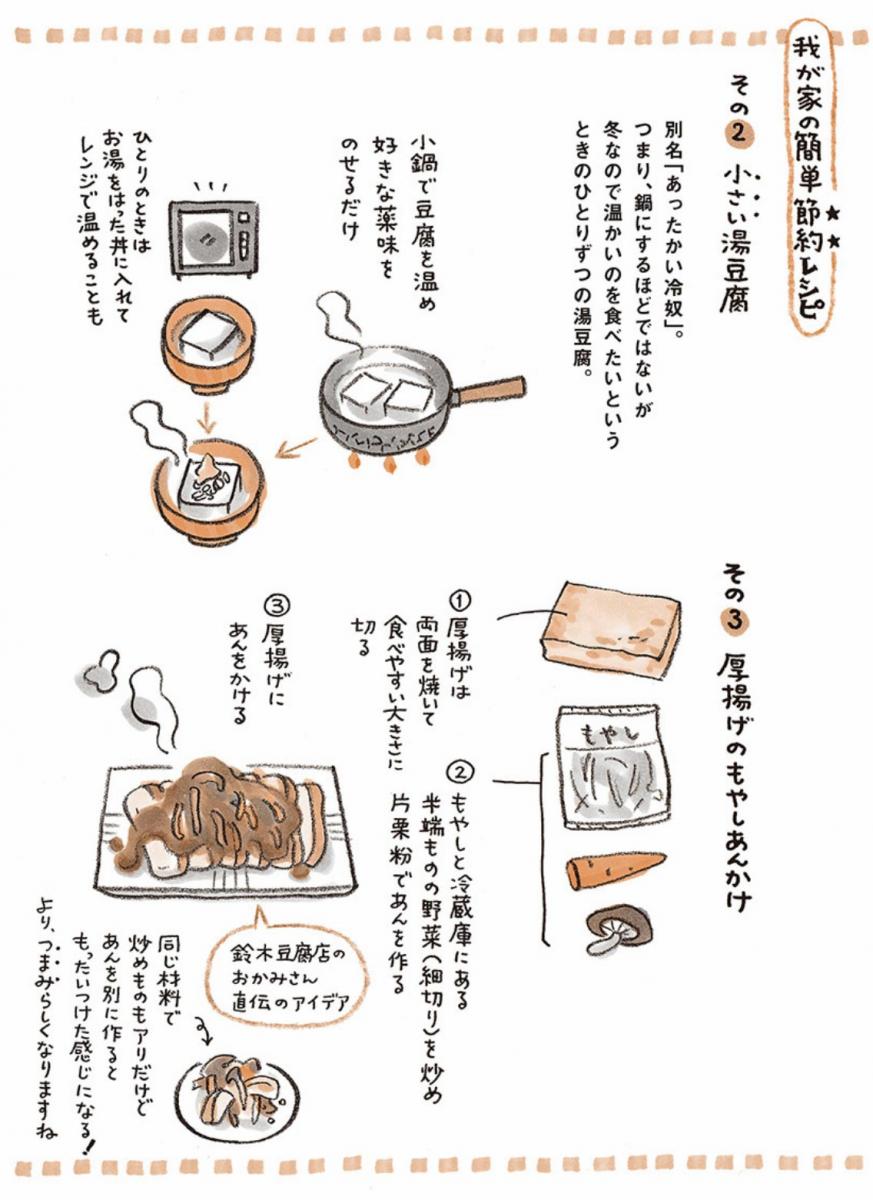 我が家の簡単節約レシピ
その2 小さい湯豆腐
別名「あったかい冷奴」。
つまり、鍋にするほどではないが
冬なので温かいのを食べたいという
ときのひとりずつの湯豆腐。
小鍋で豆腐を温め
好きな薬味を
のせるだけ
ひとりのときは
お湯をはった丼に入れて
レンジで温めることも
その3 厚揚げのもやしあんかけ
もやし
①厚揚げは
両面を焼いて
食べやすい大きさに
切る
②もやしと冷蔵庫にある
半端ものの野菜(細切り)を炒め
片栗粉であんを作る
③厚揚げに
あんをかける
鈴木豆腐店の
おかみさん
直伝のアイデア
同じ材料で
炒めものもアリだけど
あんを別に作ると
もったいつけた感じになる!
より、つまみらしくなりますね